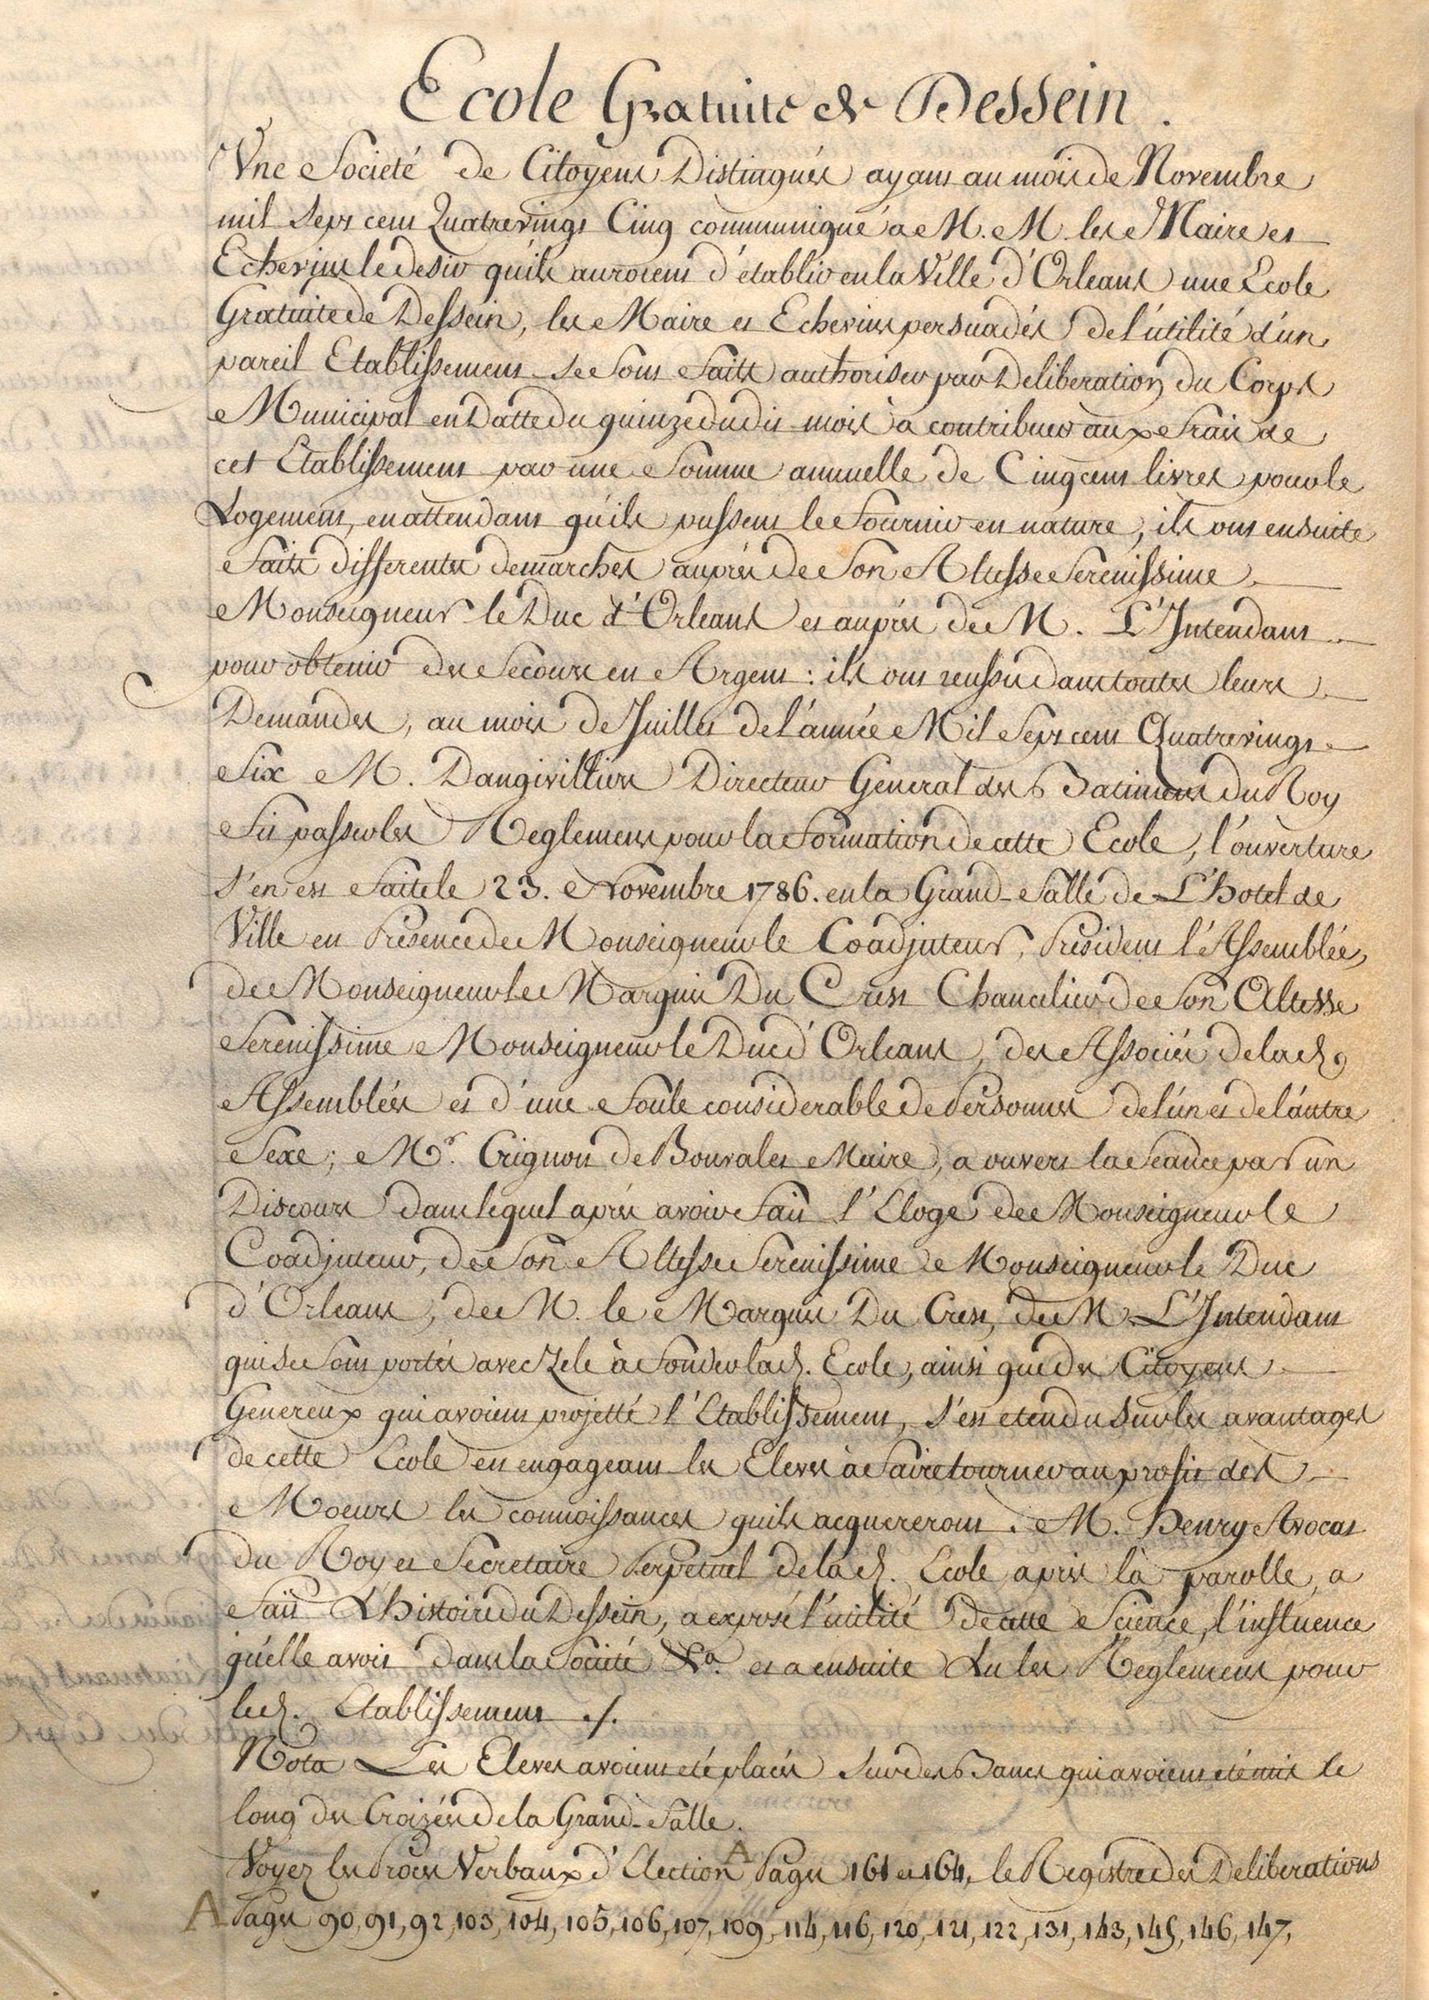 Ecole Gratuite de Dessein.
Une Societé de Citoyens Distingués ayant au mois de Novembre
mil Sept cent Quatrevingt Cinq communiqué a M. M. les Maire et
Echevins le desir qu'ils auroient d'établir en la Ville d'Orleans une Ecole
Gratuite de Dessein, les Maire et Echevins persuadés de l'utilité d'un
pareil Etablissement se sont faits authoriser par Deliberation du Corps
Municipal en Datte du quinze dudit mois à contribuer aux frais de
cet Etablissement par une Somme annuelle de Cinq cent livres pour le
Logement, en attendant qu'ils pussent le fournir en nature, ils ont ensuite
faits differentes demarches auprés de Son Altesse Serenissime
Monseigneur le Duc d'Orleans et auprés de M. L'Intendant
pour obtenir des Secours en Argent : ils ont reussi dans toutes leurs
Demandes, au mois de Juillet de l'année Mil Sept cent Quatrevingt
Six M. Dangivilliers Directeur General des Batimens du Roy
fit passer les Reglemens pour la formation de cette Ecole, l'ouverture
s'en est faite le 23. Novembre 1786. en la Grand-Salle de L'hotel de
Ville en Présence de Monseigneur le Coadjuteur, Président l'Assemblée,
de Monseigneur le Marquis Du Crest Chancelier de Son Altesse
Serenissime Monseigneur le Duc d'Orleans, des Associés de lad.
Assemblée et d'une foule considerable de Personnes de l'un et de l'autre
Sexe; Mr. Crignon de Bonvalet Maire, a ouvert la Seance par un
Discours dans lequel aprés avoir fait l'Eloge de Monseigneur le
Coadjuteur, de Son Altesse Serenissime Monseigneur le Duc
d'Orleans, de M. le Marquis Du Crest, de M. L'Intendant
qui se sont portés avec Zele à fonder lad. Ecole, ainsi que des Citoyens
Genereux qui avoient projetté l'Etablissement, s'est etendu sur les avantages
de cette Ecole en engageant les Eleves à faire tourner au profit des
Moeurs les connoissances qu'ils acquereront. M. Henry Avocat
du Roy et Secretaire Perpetuel de lad. Ecole a pris la parolle, a
fait L'histoire du Dessein, a exposé l'utilité de cette Science, l'influence
qu'elle avoit dans la Société &a. et a ensuite Lu les Reglemens pour
led. Etablissement ./.
Nota Les Eleves avoient eté placés sur des Bancs qui avoient eté mis le
long des Croizées de la Grand-Salle.
Voyez les Procès Verbaux d'Election A Pages 161 et 164, le Registre des Deliberations
A Pages 90, 91, 92, 103, 104, 105, 106, 107, 109, 114, 116, 120, 121, 122, 131, 143, 145, 146, 147,